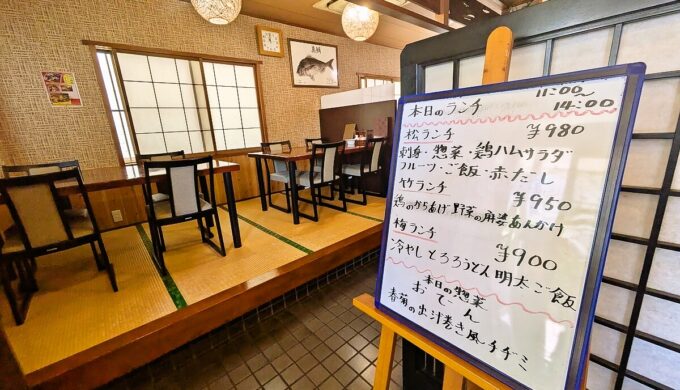 真鯛
本日のランチ 11:00~14:00
松ランチ ¥980
刺身・惣菜・鶏ハムサラダ
フルーツ・ご飯・赤だし
竹ランチ ¥950
鶏のからあげ 野菜の麻婆あんかけ
梅ランチ ¥900
冷やしとろろうどん 明太ご飯
本日の惣菜
おでん
春菊の出汁巻き風チヂミ